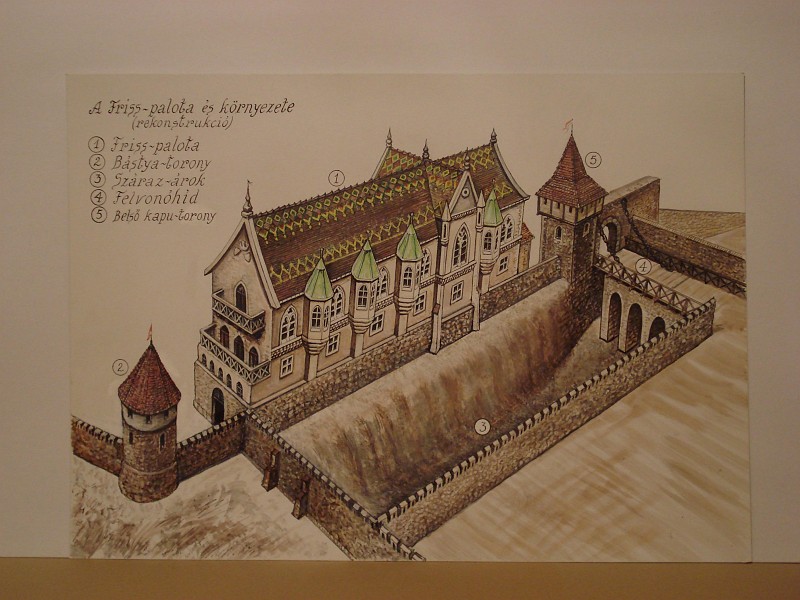 A Friss-palota és környezete
(rekonstrukció)
1 Friss-palota
2 Bástya-torony
3 Száraz-árok
4 Felvonóhid
5 Belső kapu-torony
1
5
4
2
3